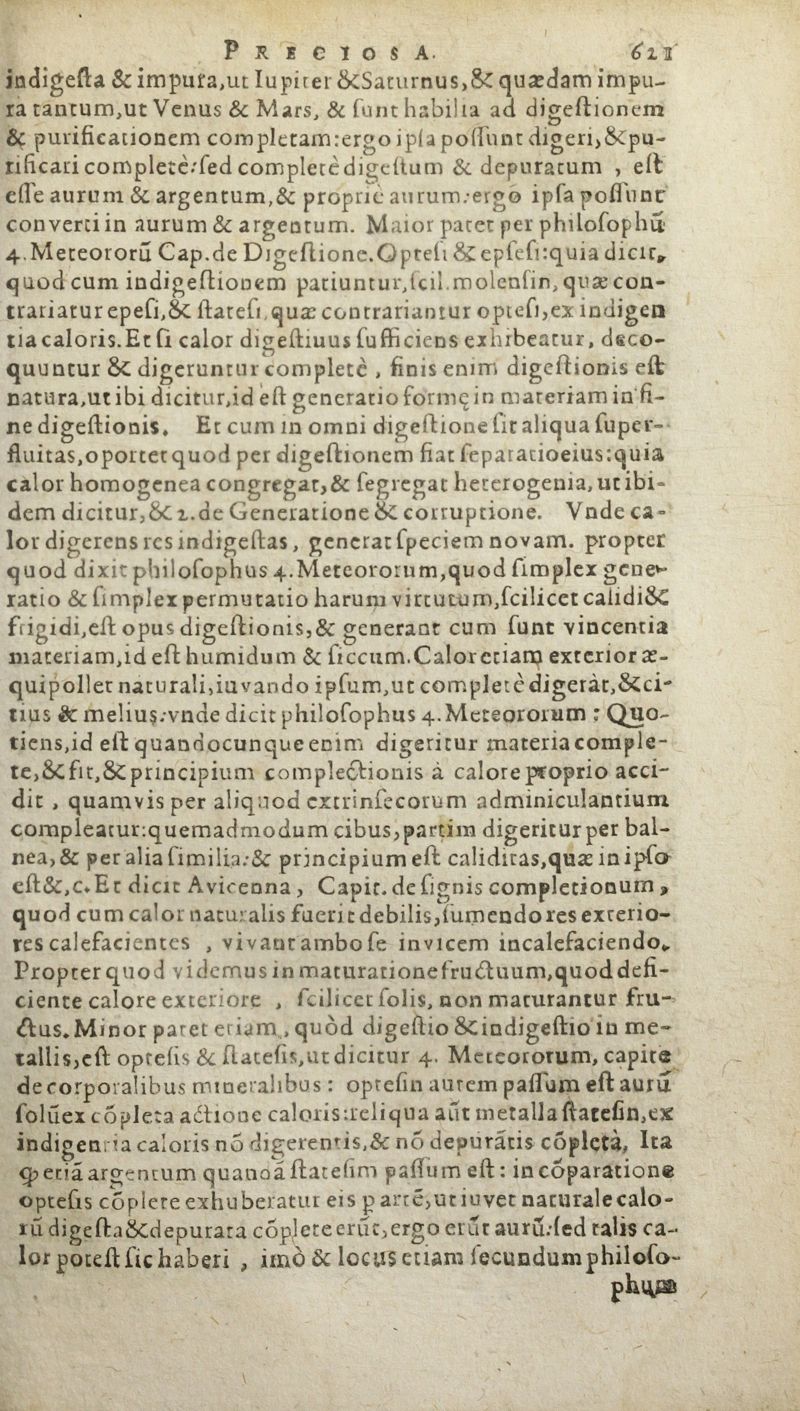 PRECIOSA. 621
indigeſta & impura,ut Iupiter &Saturnus,& quædam impu-
ra tantum,ut Venus & Mars, & ſunt habilia ad digeſtionem
& purificationem completam:ergo ipſa poſſunt digeri,&pu-
rificari completè:ſed completè digeſtum & depuratum , eſt
eſſe aurum & argentum,& propriè aurum:ergo ipſa poſſunt
converti in aurum & argentum. Maior patet per philoſophū
4.Meteororū Cap.de Digeſtione.Opteſi & epſeſi:quia dicit,
quod cum indigeſtionem patiuntur,ſcil.molenſin, quæ con-
trariatur epeſi,& ſtateſi,quæ contrariantur opteſi,ex indigen
tia caloris.Et ſi calor digeſtiuus ſufficiens exhibeatur, deco-
quuntur & digeruntur completè , finis enim digeſtionis eſt
natura,ut ibi dicitur,id eſt generatio formę in materiam in fi-
ne digeſtionis. Et cum in omni digeſtione ſit aliqua ſuper-
fluitas,oportet quod per digeſtionem fiat ſeparatio eius:quia
calor homogenea congregat,& ſegregat heterogenia, ut ibi-
dem dicitur,& 2.de Generatione & corruptione. Vnde ca-
lor digerens res indigeſtas, generat ſpeciem novam. propter
quod dixit philoſophus 4.Meteororum,quod ſimplex gene-
ratio & ſimplex permutatio harum virtutum,ſcilicet calidi&
frigidi,eſt opus digeſtionis,& generant cum ſunt vincentia
materiam,id eſt humidum & ſiccum.Calor etiam exterior æ-
quipollet naturali,iuvando ipſum,ut completè digeràt,&ci-
tius & melius:vnde dicit philoſophus 4.Meteororum : Quo-
tiens,id eſt quandocunque enim digeritur materia comple-
te,& fit,& principium complectionis à calore proprio acci-
dit , quamvis per aliquod extrinſecorum adminiculantium
compleatur:quemadmodum cibus,partim digeritur per bal-
nea,& per alia ſimilia:& principium eſt caliditas,quæ in ipſo
eſt&,c.Et dicit Avicenna, Capit.de ſignis completionum,
quod cum calor naturalis fuerit debilis,ſumendo res exterio-
res calefacientes , vivant ambo ſe invicem incalefaciendo.
Propter quod videmus in maturatione fructuum,quod defi-
ciente calore exteriore , ſcilicet ſolis, non maturantur fru-
ctus.Minor patet etiam, quòd digeſtio & indigeſtio in me-
tallis,eſt opteſis & ſtateſis,ut dicitur 4. Meteororum, capite
de corporalibus mineralibus : opteſin autem paſſum eſt aurū
ſolū ex cōpleta actione caloris:reliqua aūt metalla ſtateſin,ex
indigentia caloris nō digerentis,& nō depuràtis cōpletà, Ita
ꝙ etiā argentum quandā ſtateſim paſſum eſt : in cōparatione
opteſis cōplete exhuberatur eis p artē,ut iuvet naturale calo-
rū digeſta&depurata cōplete erūt,ergo erūt aurū:ſed talis ca-
lor poteſt ſic haberi , imò & locus etiam ſecundum philoſo-
phum